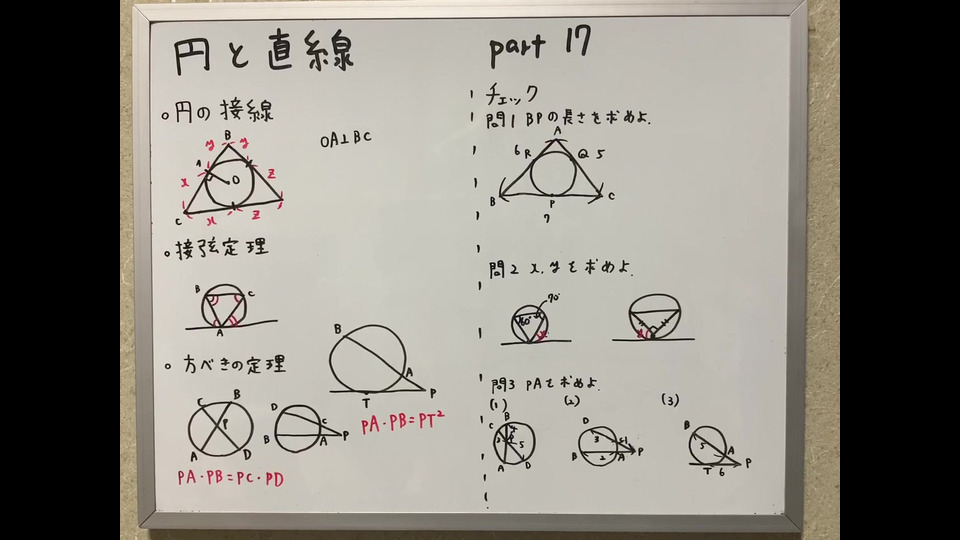 円と直線
part 17
○円の接線
OA⊥BC
B
y
y
A
x
O
z
C
x
z
○接弦定理
B
C
A
○方べきの定理
C
B
P
A
D
D
C
B
A
P
B
A
T
P
PA・PB=PC・PD
PA・PB=PT²
チェック
問1 BPの長さを求めよ.
A
6
R
Q
5
B
P
C
7
問2 x,yを求めよ.
70°
60°
問3 PAを求めよ.
(1)
(2)
(3)
B
C
5
A
D
D
3
B
2
A
P
B
5
A
T
6
P